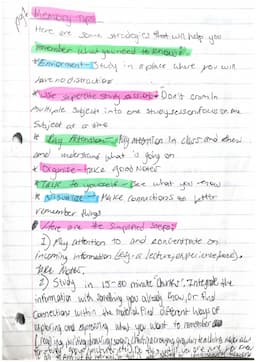 pg1 Memory Tips
Here are some strategies that will help you
remember what you need to know:
* Enviorment - Study in a place where you will
have no distraction
* Use seperate study sessions - Don't cram in
multiple subject into one study session focus on one
subject at a time
* Pay Attention - Pay attention in class and know
and understand what is going on
* Organize - Take good Notes
* Talk to yourself - See what you know
* Visualize - Make connections to better
remember things
Here are the simplified steps:
1) Pay attention to and concentrate on
incoming information (e.g. a lecture, experience, book).
Take Notes.
2) Study in 15-30 minute "chunks". Integrate the
information with something you already know, or find
connections within the material. Find different ways of
exploring and expressing what you want to remember